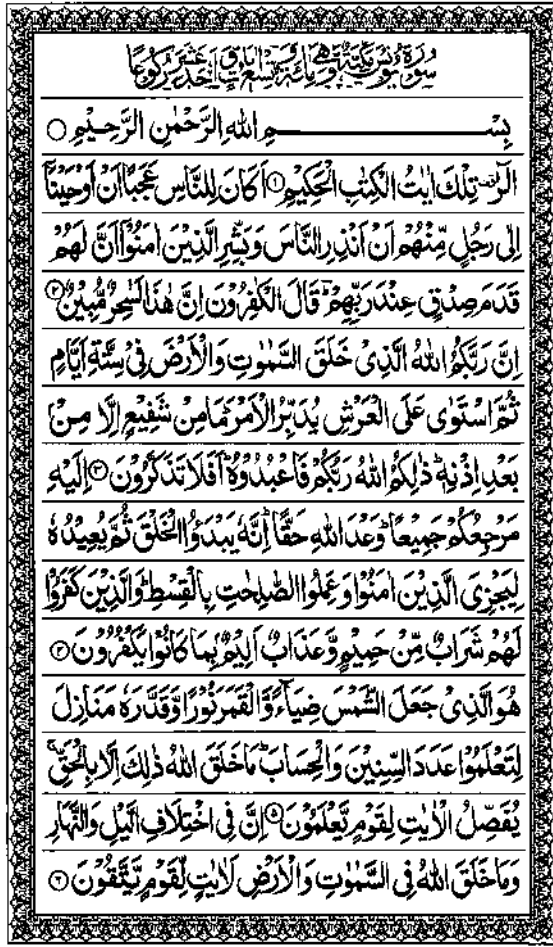 سُورَةُ يُونُسَ مَكِّيَّةٌ وَّهِيَ مِائَةٌ وَّتِسْعُ اٰيَاتٍ وَّاَحَدَ عَشَرَ رُكُوْعًا
بِسْــــــــمِ اللهِ الرَّحْمٰنِ الرَّحِيْمِ ○
الٓرٰ ۫ تِلْكَ اٰيٰتُ الْكِتٰبِ الْحَكِيْمِ ۝۱ اَكَانَ لِلنَّاسِ عَجَبًا اَنْ اَوْحَيْنَاۤ
اِلٰى رَجُلٍ مِّنْهُمْ اَنْ اَنْذِرِ النَّاسَ وَبَشِّرِ الَّذِيْنَ اٰمَنُوْۤا اَنَّ لَهُمْ
قَدَمَ صِدْقٍ عِنْدَ رَبِّهِمْ ؕ قَالَ الْكٰفِرُوْنَ اِنَّ هٰذَا لَسٰحِرٌ مُّبِيْنٌ ۝۲
اِنَّ رَبَّكُمُ اللهُ الَّذِيْ خَلَقَ السَّمٰوٰتِ وَالْاَرْضَ فِيْ سِتَّةِ اَيَّامٍ
ثُمَّ اسْتَوٰى عَلَى الْعَرْشِ يُدَبِّرُ الْاَمْرَ ؕ مَا مِنْ شَفِيْعٍ اِلَّا مِنْۢ
بَعْدِ اِذْنِهٖ ؕ ذٰلِكُمُ اللهُ رَبُّكُمْ فَاعْبُدُوْهُ ؕ اَفَلَا تَذَكَّرُوْنَ ۝۳ اِلَيْهِ
مَرْجِعُكُمْ جَمِيْعًا ؕ وَعْدَ اللهِ حَقًّا ؕ اِنَّهٗ يَبْدَؤُا الْخَلْقَ ثُمَّ يُعِيْدُهٗ
لِيَجْزِيَ الَّذِيْنَ اٰمَنُوْا وَعَمِلُوا الصّٰلِحٰتِ بِالْقِسْطِ ؕ وَالَّذِيْنَ كَفَرُوْا
لَهُمْ شَرَابٌ مِّنْ حَمِيْمٍ وَّعَذَابٌ اَلِيْمٌۢ بِمَا كَانُوْا يَكْفُرُوْنَ ۝۴
هُوَ الَّذِيْ جَعَلَ الشَّمْسَ ضِيَآءً وَّالْقَمَرَ نُوْرًا وَّقَدَّرَهٗ مَنَازِلَ
لِتَعْلَمُوْا عَدَدَ السِّنِيْنَ وَالْحِسَابَ ؕ مَا خَلَقَ اللهُ ذٰلِكَ اِلَّا بِالْحَقِّ ۚ
يُفَصِّلُ الْاٰيٰتِ لِقَوْمٍ يَّعْلَمُوْنَ ۝۵ اِنَّ فِي اخْتِلَافِ الَّيْلِ وَالنَّهَارِ
وَمَا خَلَقَ اللهُ فِي السَّمٰوٰتِ وَالْاَرْضِ لَاٰيٰتٍ لِّقَوْمٍ يَّتَّقُوْنَ ۝۶